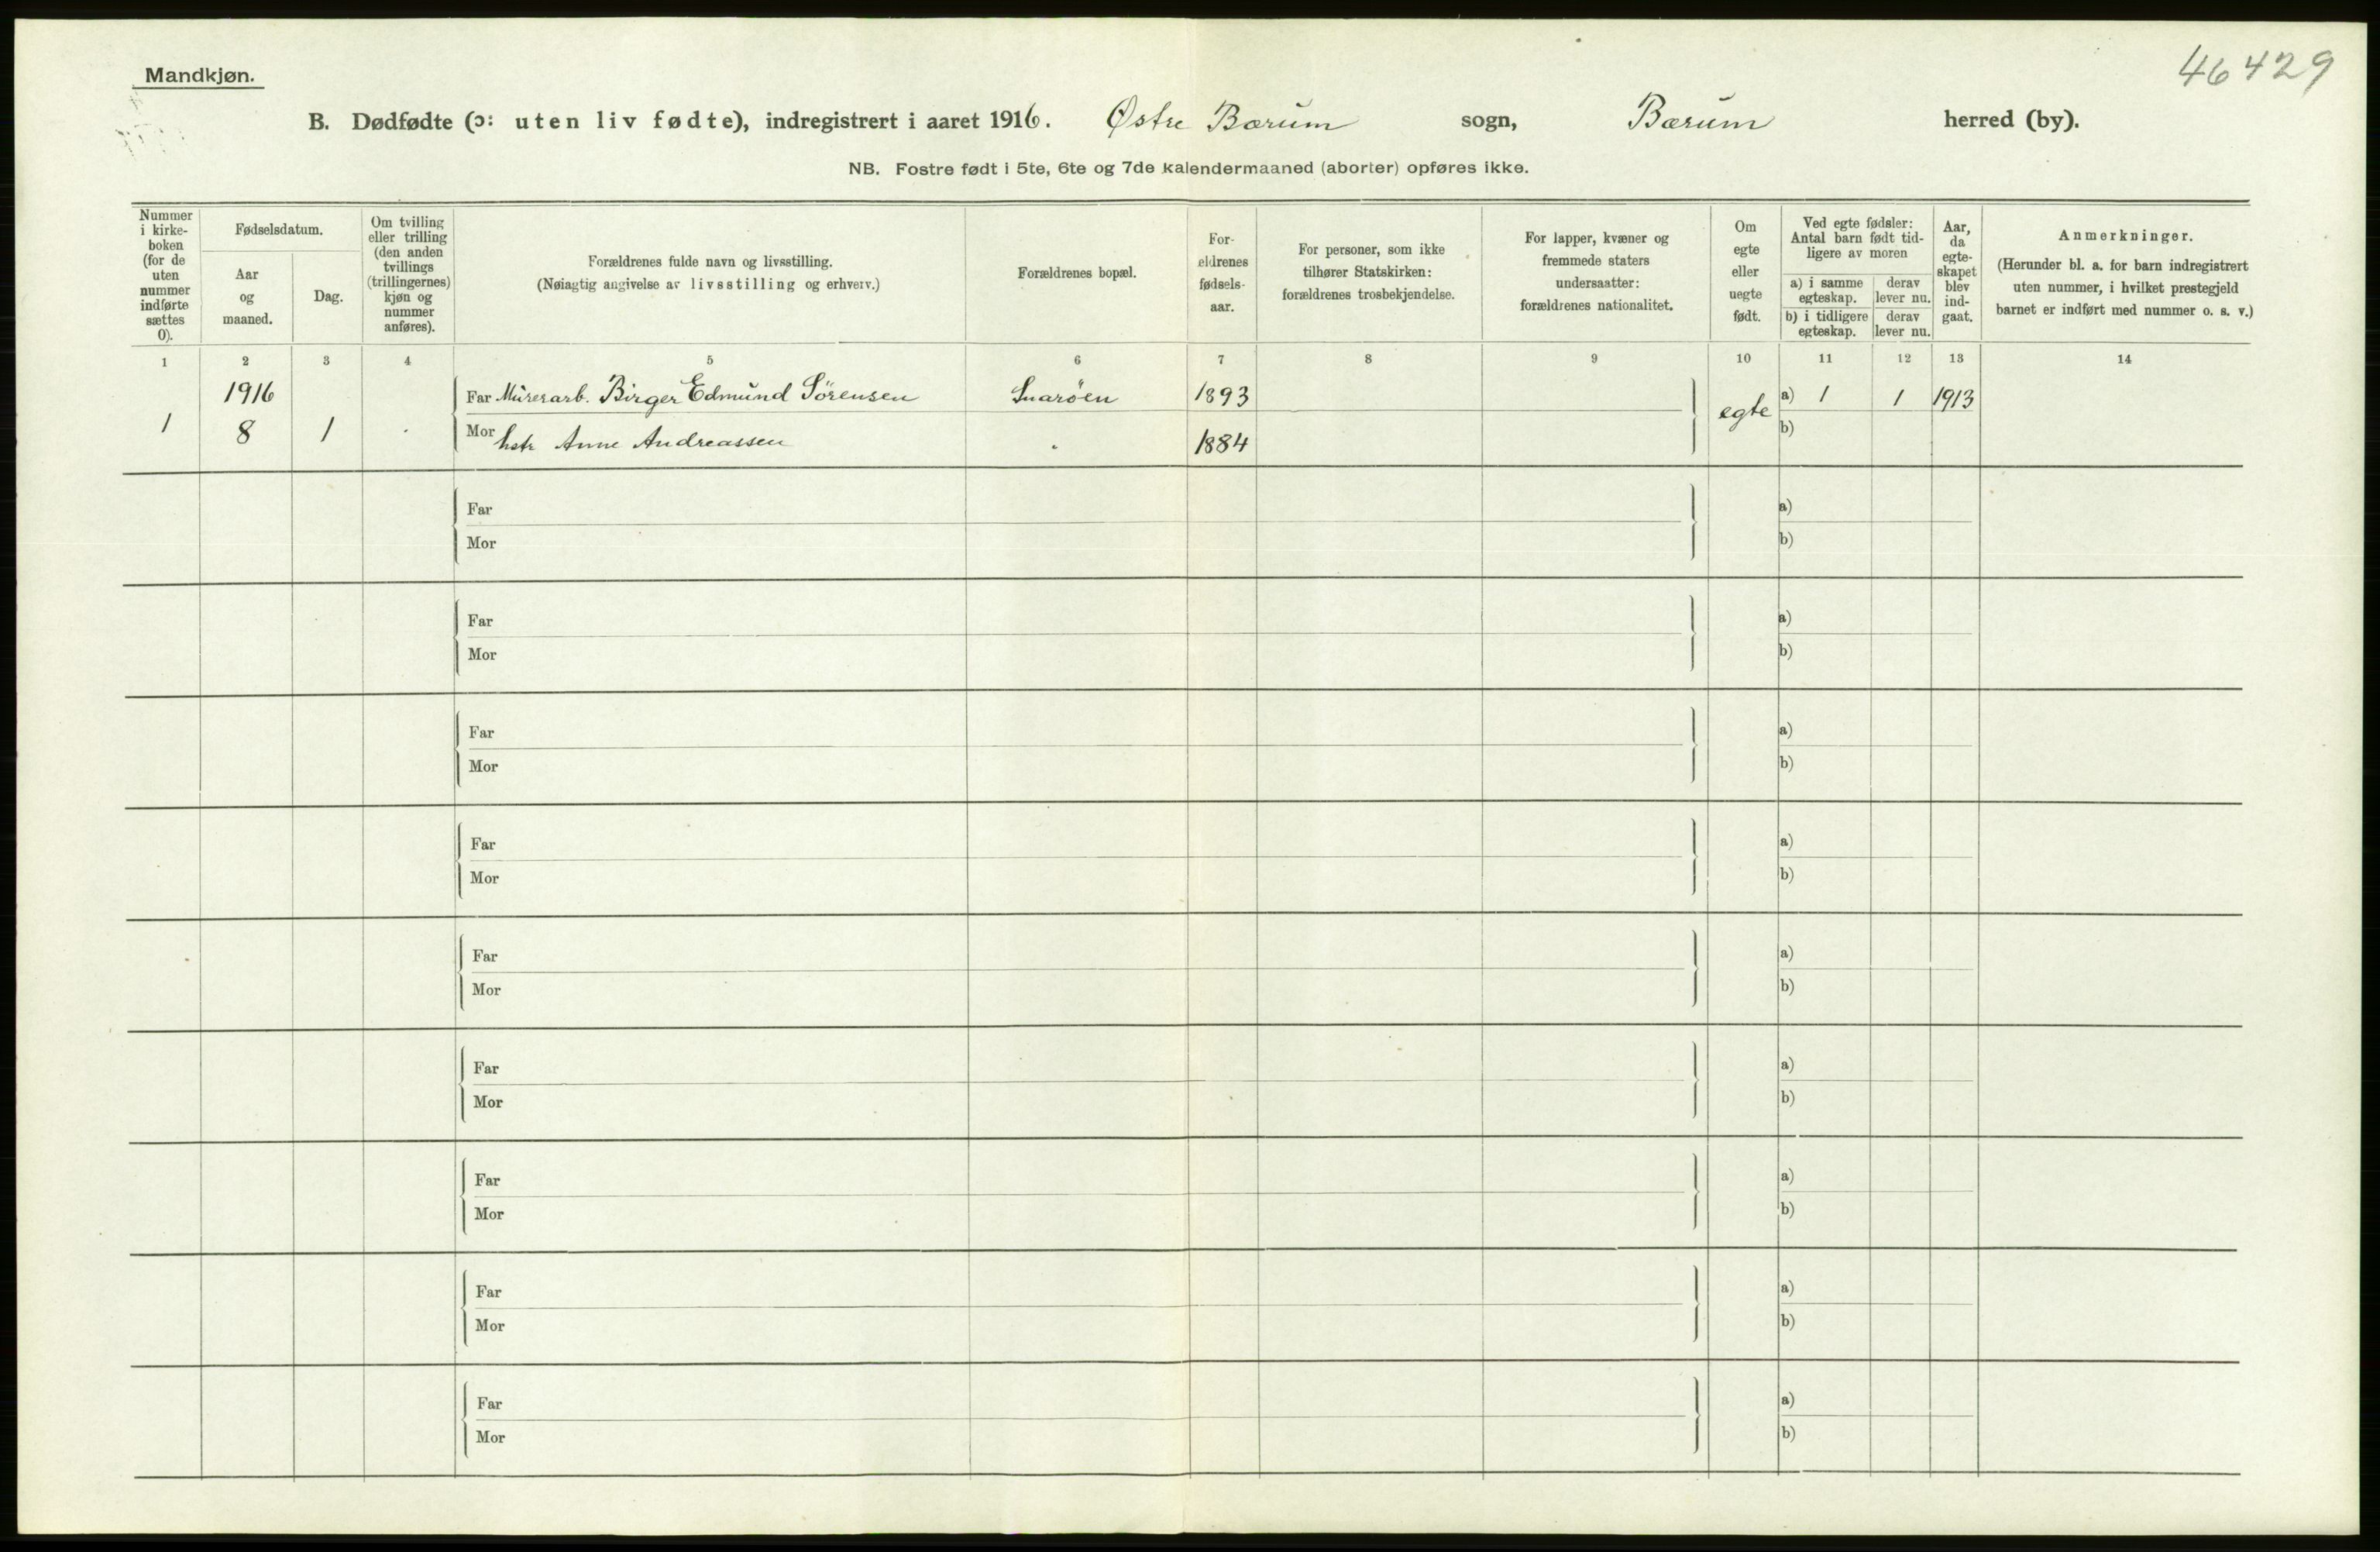 46 429
Mandkjøn.
B. Dødfødte (ɔ: uten liv fødte), indregistrert i aaret 1916. Østre Bærum sogn, Bærum herred (by).
NB. Fostre født i 5te, 6te og 7de kalendermaaned (aborter) opføres ikke.
Nummer
i kirke-
boken
(for de
uten
nummer
indførte
sættes
0).
Fødselsdatum.
Aar
og
maaned.
Dag.
Om tvilling
eller trilling
(den anden
tvillings
(trillingernes)
kjøn og
nummer
anføres).
Forældrenes fulde navn og livsstilling.
(Nøiagtig angivelse av livsstilling og erhverv.)
Forældrenes bopæl.
For-
ældrenes
fødsels-
aar.
For personer, som ikke
tilhører Statskirken:
forældrenes trosbekjendelse.
For lapper, kvæner og
fremmede staters
undersaatter:
forældrenes nationalitet.
Om
egte
eller
uegte
født.
Ved egte fødsler:
Antal barn født tid-
ligere av moren
a) i samme
egteskap.
derav
lever nu.
b) i tidligere
egteskap.
derav
lever nu.
Aar,
da
egte-
skapet
blev
ind-
gaat.
Anmerkninger.
(Herunder bl. a. for barn indregistrert
uten nummer, i hvilket prestegjeld
barnet er indført med nummer o. s. v.)
1 2 3 4 5 6 7 8 9 10 11 12 13 14
1916 Far Murerarb. Birger Edmund Sörensen Snaröen 1893 egte a) 1 1 1913
1 8 1 Mor hstr Anne Andreassen " 1884 b)
Far a)
Mor b)
Far a)
Mor b)
Far a)
Mor b)
Far a)
Mor b)
Far a)
Mor b)
Far a)
Mor b)
Far a)
Mor b)
Far a)
Mor b)
Far a)
Mor b)